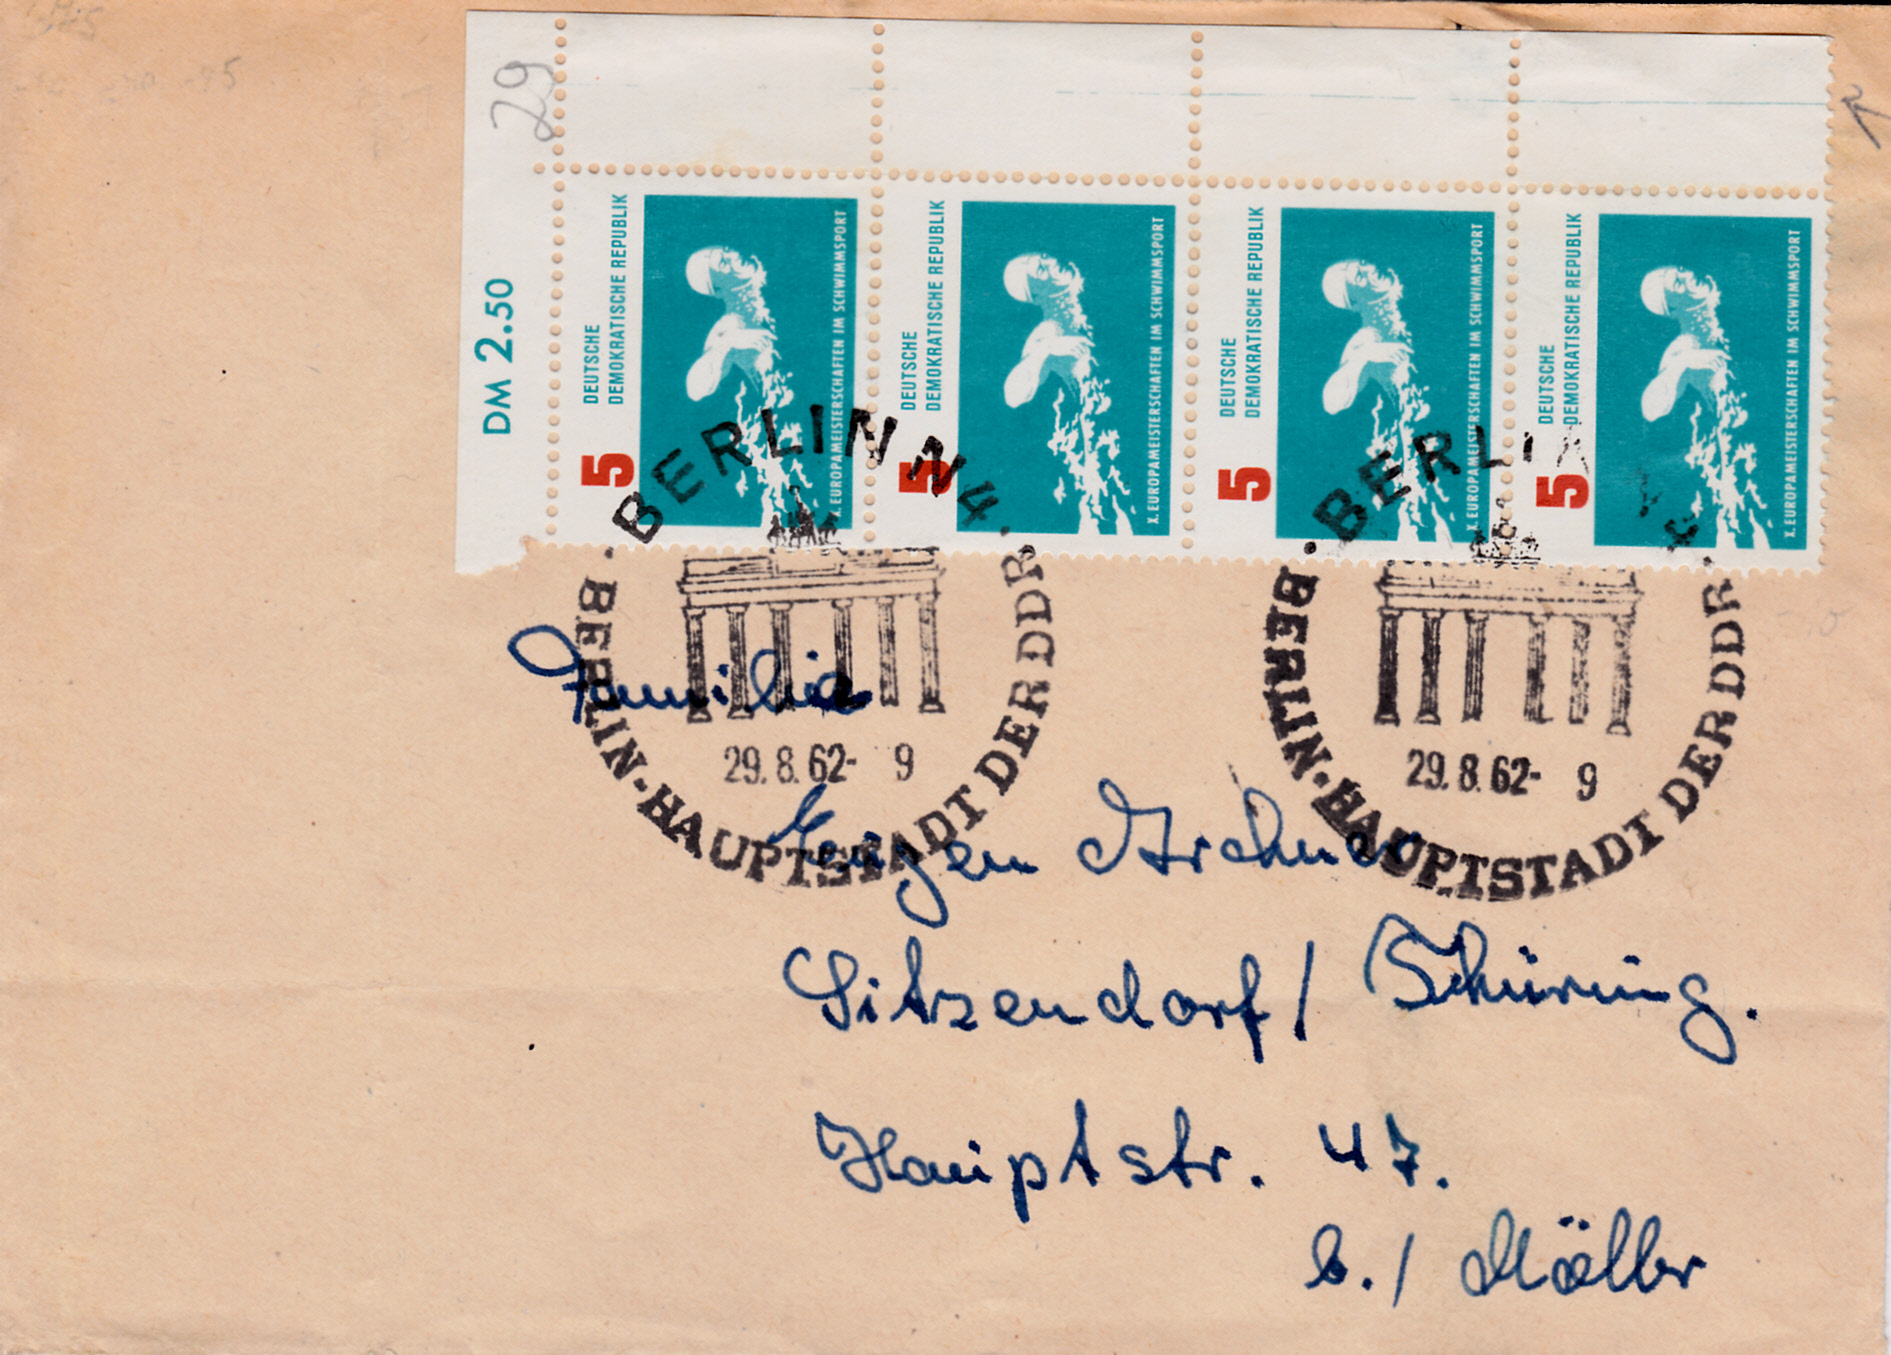 29
DM 2.50
DEUTSCHE
DEMOKRATISCHE REPUBLIK
5
X. EUROPAMEISTERSCHAFTEN IM SCHWIMMSPORT
DEUTSCHE
DEMOKRATISCHE REPUBLIK
5
X. EUROPAMEISTERSCHAFTEN IM SCHWIMMSPORT
DEUTSCHE
DEMOKRATISCHE REPUBLIK
5
X. EUROPAMEISTERSCHAFTEN IM SCHWIMMSPORT
DEUTSCHE
DEMOKRATISCHE REPUBLIK
5
X. EUROPAMEISTERSCHAFTEN IM SCHWIMMSPORT
BERLIN N 4
29.8.62- 9
BERLIN-HAUPTSTADT DER DDR
BERLIN N 4
29.8.62- 9
BERLIN-HAUPTSTADT DER DDR
Familie
Eugen
Sitzendorf / Thüring.
Hauptstr. 47.
b./ Möller